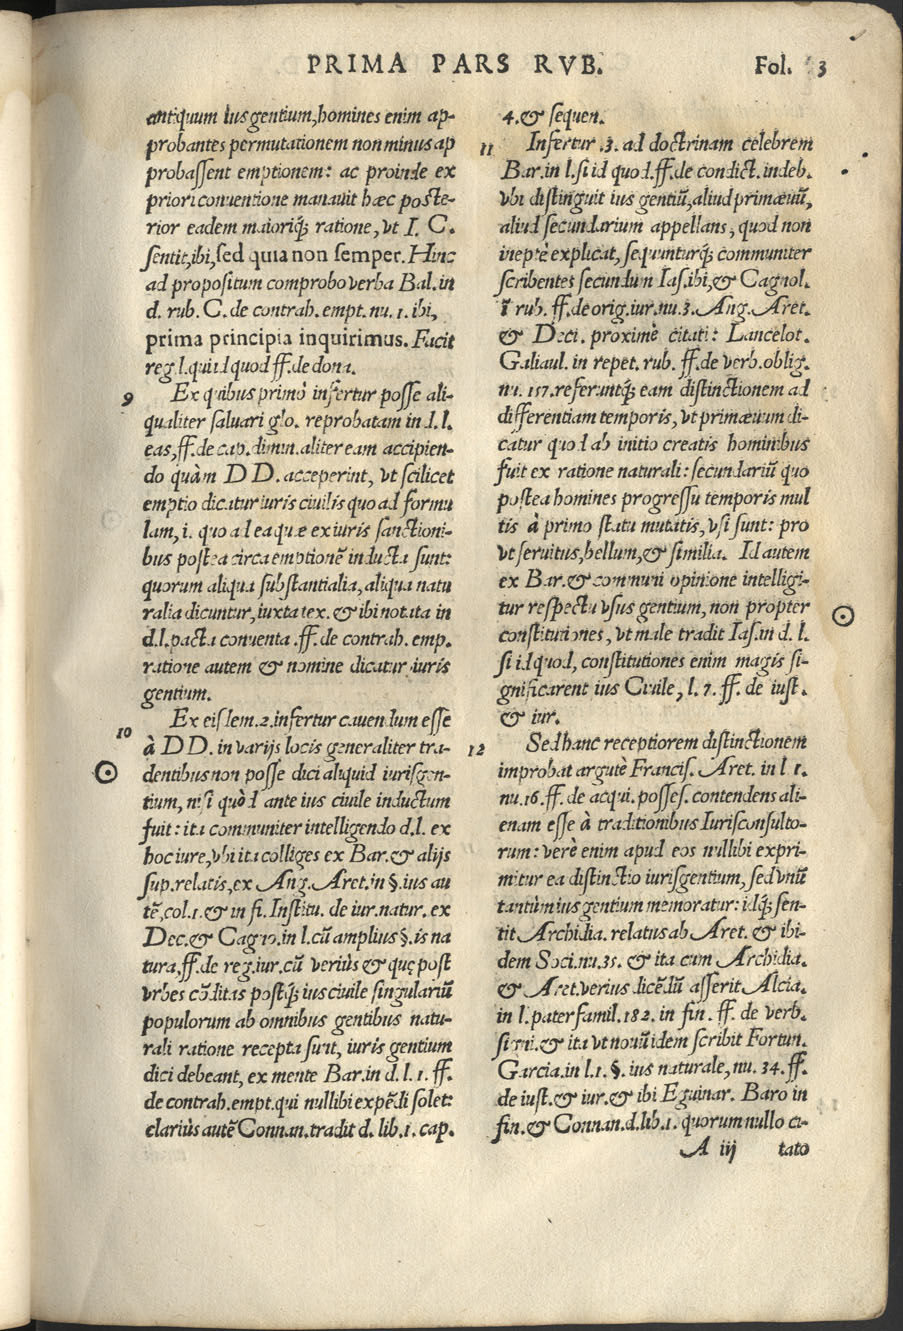 PRIMA PARS RVB.
Fol. 3
antiquum ius gentium, homines enim ap-
probantes permutationem non minus ap
probassent emptionem: ac proinde ex
priori conventione manauit hæc poste-
rior eadem maioriq́; ratione, vt I. C.
sentit, ibi, sed quia non semper. Hinc
ad propositum comprobo verba Bal. in
d. rub. C. de contrah. empt. nu. 1. ibi,
prima principia inquirimus. Facit
reg. l. qui id quod ff. de dona.
9
Ex quibus primò infertur posse ali-
qualiter saluari glo. reprobatam in d. l.
eas, ff. de cap. dimin. aliter eam accipien-
do quàm DD. acceperint, vt scilicet
emptio dicatur iuris ciuilis quo ad formu
lam, i. quo ad ea quæ ex iuris sanctioni-
bus postea circa emptionẽ inducta sunt:
quorum aliqua substantialia, aliqua natu
ralia dicuntur, iuxta tex. & ibi notata in
d. l. pacta conuenta. ff. de contrah. emp.
ratione autem & nomine dicatur iuris
gentium.
10
Ex eisdem. 2. infertur cauendum esse
à DD. in varijs locis generaliter tra-
dentibus non posse dici aliquid iuris gen-
tium, nisi quòd ante ius ciuile inductum
fuit: ita communiter intelligendo d. l. ex
hoc iure, vbi ita colliges ex Bar. & alijs
sup. relatis, ex Ang. Aret. in §. ius au
tẽ, col. 1. & in fi. Institu. de iur. natur. ex
Dec. & Cagno. in l. cũ amplius §. is na
tura, ff. de reg. iur. cũ veriùs & quę post
vrbes cõditas postq́; ius ciuile singulariũ
populorum ab omnibus gentibus natu-
rali ratione recepta sunt, iuris gentium
dici debeant, ex mente Bar. in d. l. 1. ff.
de contrah. empt. qui nullibi expẽdi solet:
clariùs autẽ Connan. tradit d. lib. 1. cap.
4. & sequen.
11
Infertur. 3. ad doctrinam celebrem
Bar. in l. si id quod. ff. de condict. indeb.
vbi distinguit ius gentiũ, aliud primæuũ,
aliud secundarium appellans, quod non
ineptè explicat, sequunturq́; communiter
scribentes secundum Ias. ibi, & Cagnol.
ĩ rub. ff. de orig. iur. nu. 3. Ang. Aret.
& Deci. proximè citati: Lancelot.
Galiaul. in repet. rub. ff. de verb. oblig.
nu. 157. referuntq́; eam distinctionem ad
differentiam temporis, vt primæuum di-
catur quod ab initio creatis hominibus
fuit ex ratione naturali: secundariũ quo
postea homines progressu temporis mul
tis à primo statu mutatis, vsi sunt: pro
vt seruitus, bellum, & similia. Id autem
ex Bar. & communi opinione intelligi-
tur respectu vsus gentium, non propter
constitutiones, vt male tradit Ias. in d. l.
si id quod, constitutiones enim magis si-
gnificarent ius Ciuile, l. 7. ff. de iust.
& iur.
12
Sed hanc receptiorem distinctionem
improbat argutè Francis. Aret. in l 1.
nu. 16. ff. de acqui. posses. contendens ali-
enam esse à traditionibus Iurisconsulto-
rum: verè enim apud eos nullibi expri-
mitur ea distinctio iuris gentium, sed vnũ
tantùm ius gentium memoratur: idq́; sen-
tit Archidia. relatus ab Aret. & ibi-
dem Soci. nu. 35. & ita cum Archidia.
& Aret. verius dicẽdũ asserit Alcia.
in l. pater famil. 182. in fin. ff. de verb.
signi. & ita vt nouũ idem scribit Fortun.
Garcia. in l. 1. §. ius naturale, nu. 34. ff.
de iust. & iur. & ibi Eguinar. Baro in
fin. & Connan. d. lib. 1. quorum nullo ci-
A iij tato